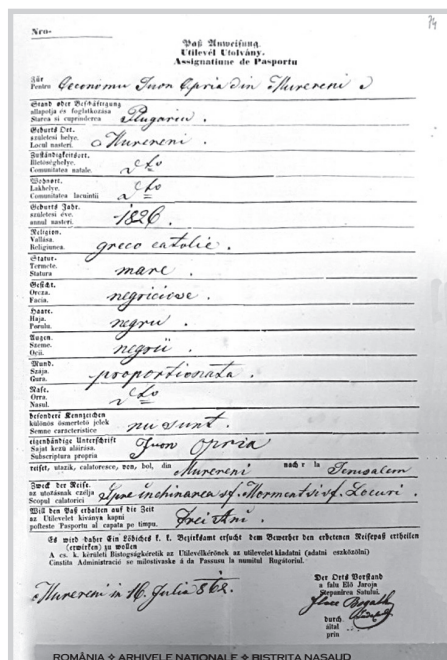 74
Nro-
Paß Anweisung.
Utilevél Utolvány.
Assignatiune de Pasportu
Für
Pentro Economu Iuon Opria din Murereni
Stand oder Beschäftigung
allapotja és foglatkozása
Starea si cuprinderea Plugariu.
Geburts Ort.
születesi helye.
Locul nasteri. Murereni.
Zuständigkeitsort.
Illetöséghelye.
Comunitatea natale. dto
Wohnort.
Lakhelye.
Comunitatea lacuintii dto
Geburts Jahr.
születesi éve.
annul nasteri. 1826.
Religion.
Vallása.
Religiunea. greco catolic.
Statur.
Termete.
Statura mare.
Gesicht.
Orcza.
Facia. negriciose.
Haare.
Haja.
Perulu. negru.
Augen.
Szeme.
Ocii. negrii.
Mund.
Szája.
Gura. proportionata.
Nase.
Orra.
Nasul. dto
besondere Kennzeichen
különös ösmertetö jelek
Semne caracteristice nu sunt.
eigenhändige Unterschrift
Sajat kezü aláirása.
Subscriptura propria Iuon Opria
reiset, utazik, calatoresce, von, bol, din Murereni nach r la Jerusalem
Zweck der Reise.
az utazásnak czélja
Scopul calatoriei Spre inchinarea sf. Mormentsi sf. Locuri.
Will den Paß erhalten auf die Zeit
az Utilevelet kiványa kapni
pofteste Pasportu al capata pe timpu. trei Ani.
Es wird daher Ein Löbliches k. k. Bezirksamt ersucht dem Bewerber den erbetenen Reisepaß ertheilen
(erwirken) zu wollen
A cs. k. kerületi Bistogságkéretik az Utilevélkérőnek az utilevelet kiadatni (adatni eszközölni)
Cinstita Administració se milostivaske á da Passusu la numitul Rugătoriul.
Murereni in 16. Julia 862.
Der Orts Vorstand
a falu Elö Jaroja
Stepanirea Satului.
durch
által
prin
ROMÂNIA ❖ ARHIVELE NAȚIONALE ❖ BISTRIȚA NASAUD